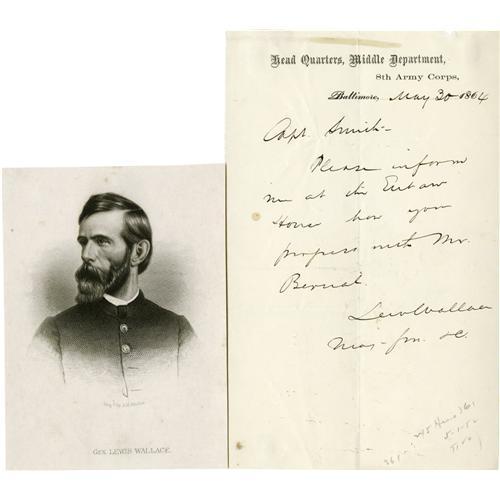 Head Quarters, Middle Department,
8th Army Corps,
Baltimore, May 30 1864
Capt. Smith-
Please inform
me at the Eutaw
House how you
progress with Mr.
Bernal.
Lew Wallace
Maj-Gn. &c.
GEN. LEWIS WALLACE.